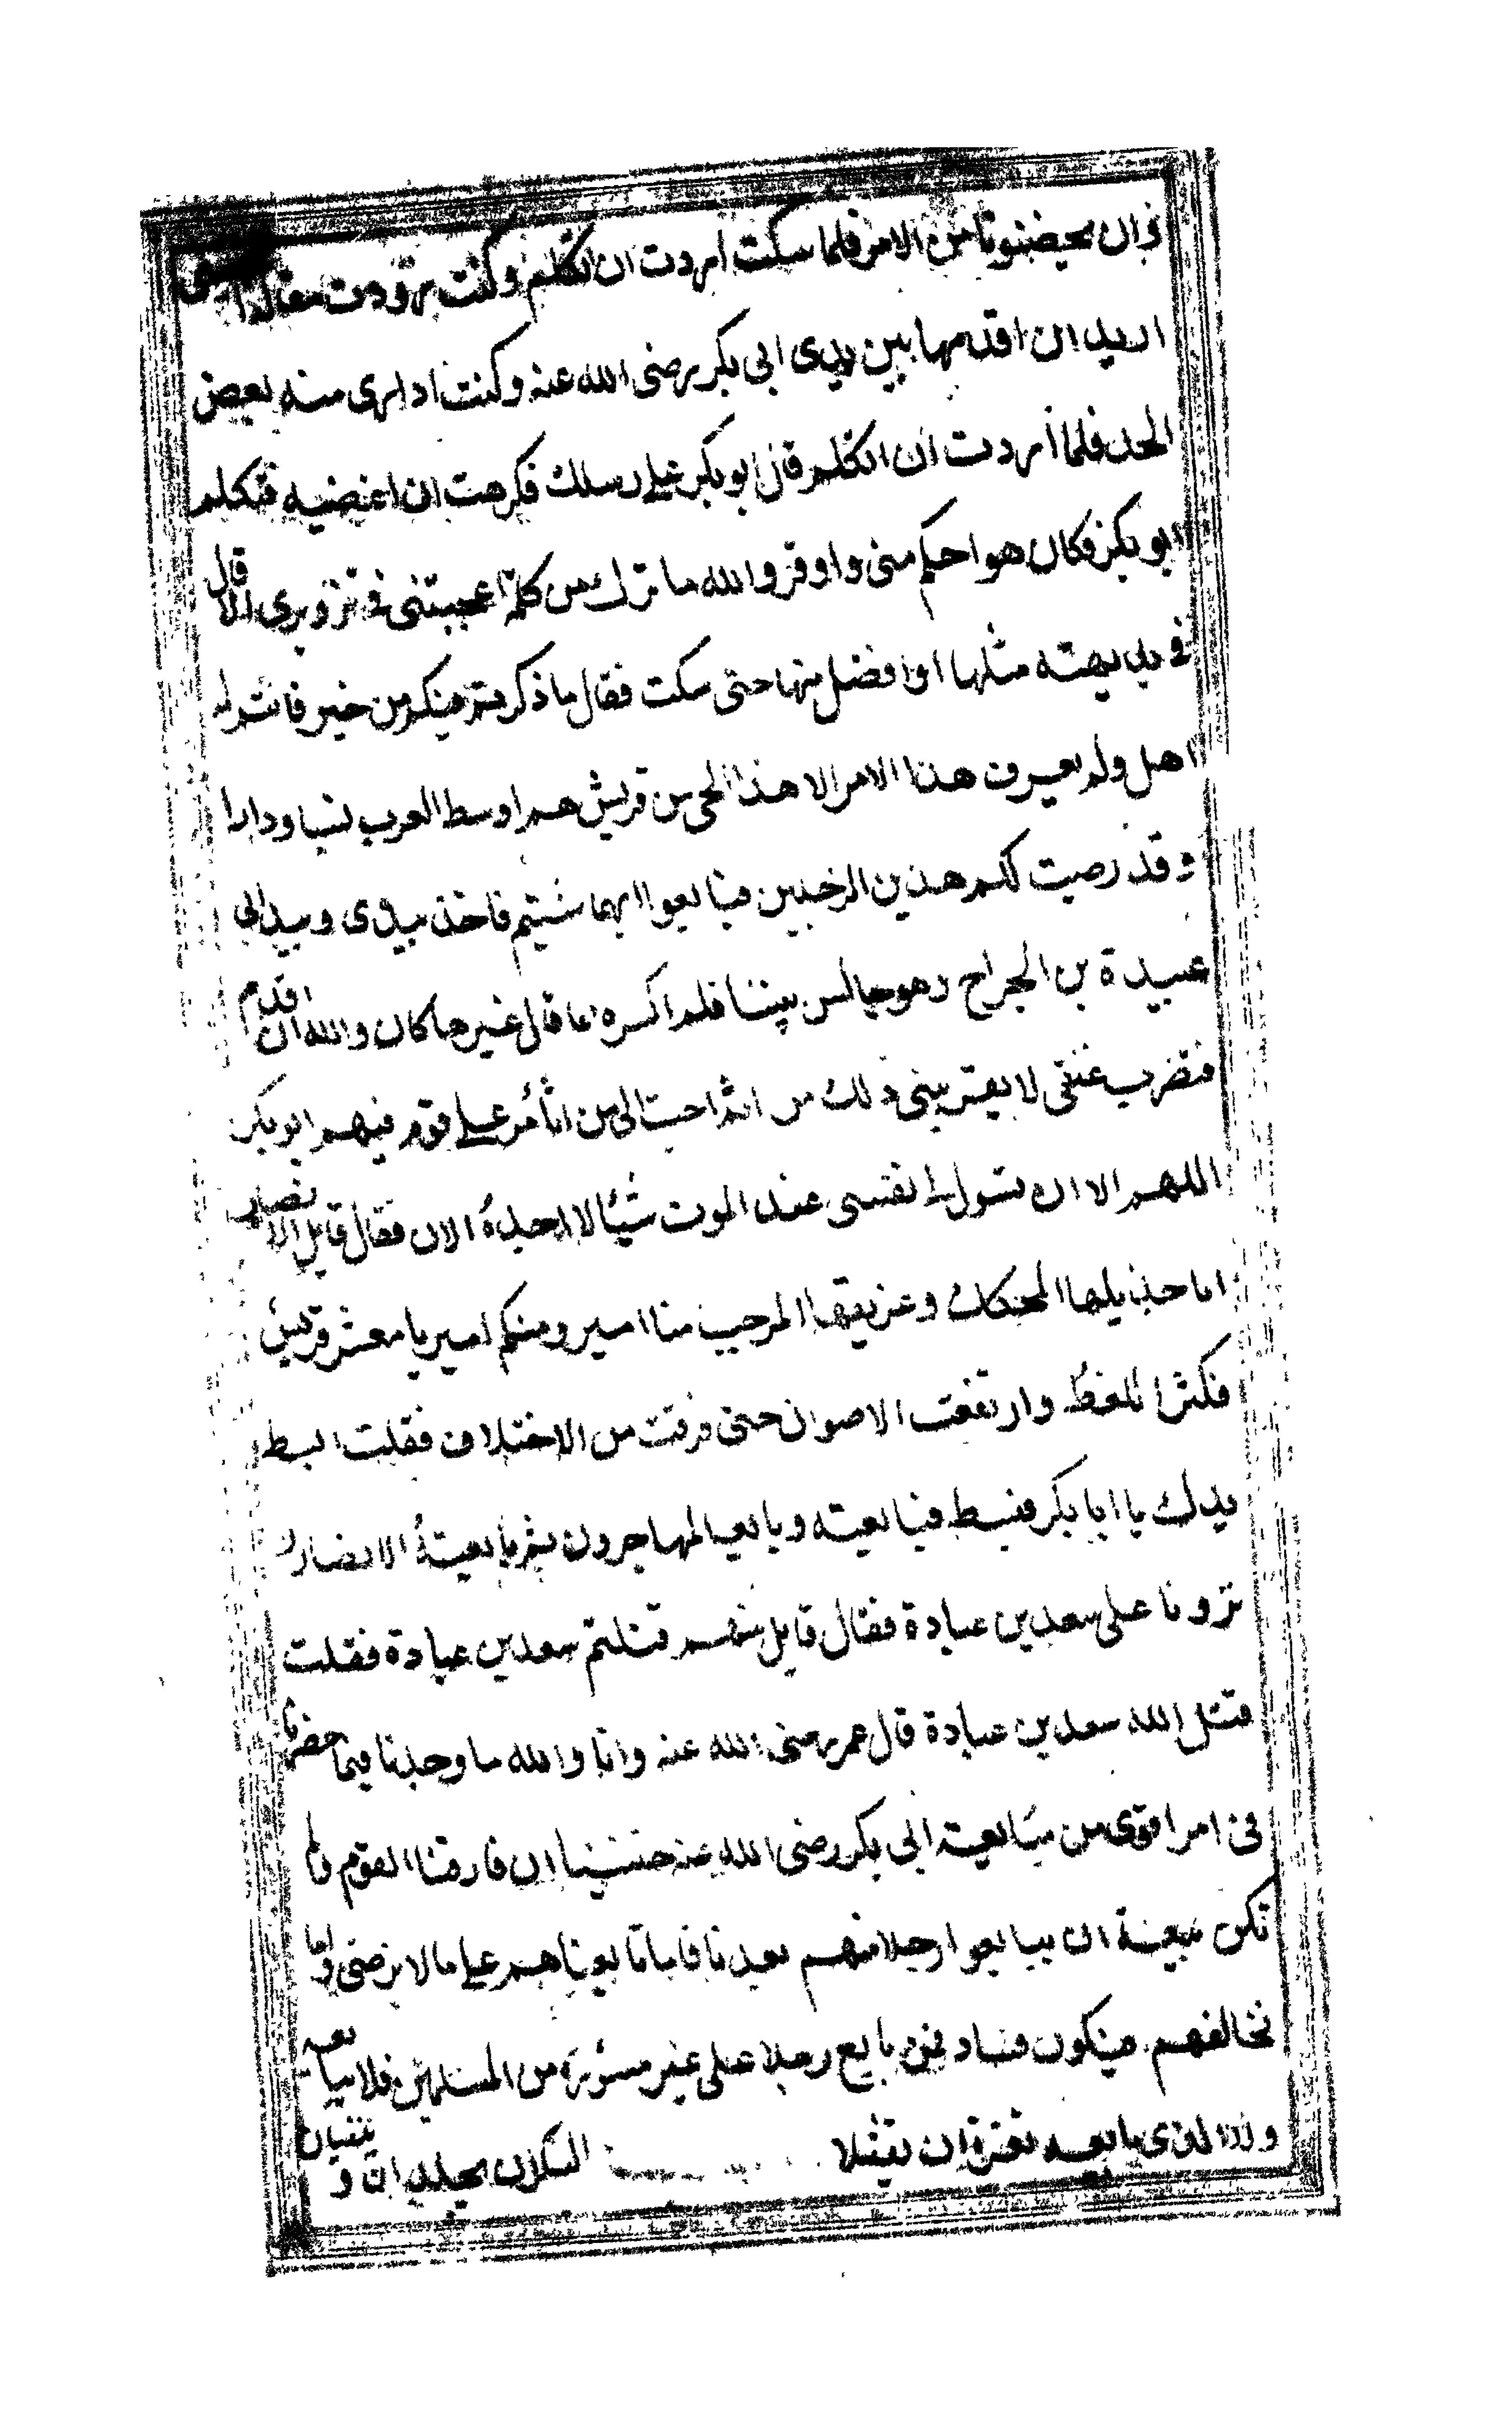 وان يحضنونا من الامر فلما سكت أردت ان اتكلم وكنت زودت مقالة
اريد ان اقدمها بين يدي ابى بكر رضى الله عنه وكنت ادارى منه بعض
الحد فلما أردت ان اتكلم قال ابو بكر على رسلك فكرهت ان اغضبه فتكلم
ابو بكر فكان هو احكم منى واوقر والله ما ترك من كلمة اعجبتنى فى تزويرى الا قال
فى بديهته مثلها او افضل منها حتى سكت فقال ما ذكرتم فيكم من خير فانتم له
اهل ولم يعرف هذا الامر الا هذا الحى من قريش هم اوسط العرب نسبا ودارا
وقد رضيت لكم هذين الرجلين فبايعوا ايهما شئتم فاخذ بيدى وبيد ابى
عبيدة بن الجراح وهو جالس بيننا فلم اكره مما قال غيرها كان والله ان اقدم
فتضرب عنقى لا يقربنى ذلك من اثم احب الى من اتأمر على قوم فيهم ابو بكر
اللهم الا ان تسول لى نفسى عند الموت شيئا لا اجده الان فقال قايل الانصار
انا جذيلها المحكك وعذيقها المرجب منا امير ومنكم امير يا معشر قريش
فكثر اللغط وارتفعت الاصوات حتى فرقت من الاختلاف فقلت ابسط
يدك يا ابا بكر فبسط فبايعته وبايع المهاجرون ثم بايعته الانصار و
نزونا على سعد بن عبادة فقال قايل منهم قتلتم سعد بن عبادة فقلت
قتل الله سعد بن عبادة قال عمر رضى الله عنه وانا والله ما وجدنا فيما حضرنا
فى امر اقوى من مبايعة ابى بكر رضى الله عنه خشينا ان فارقنا القوم ولم
تكن بيعة ان يبايعوا رجلا منهم بعدنا فاما تابعناهم على ما لا نرضى واما
نخالفهم فيكون فساد فمن بايع رجلا على غير مشورة من المسلمين فلا يتابعه
ولا الذى بايعه تغرة ان يقتلا البكران يجلدان و ينفيان